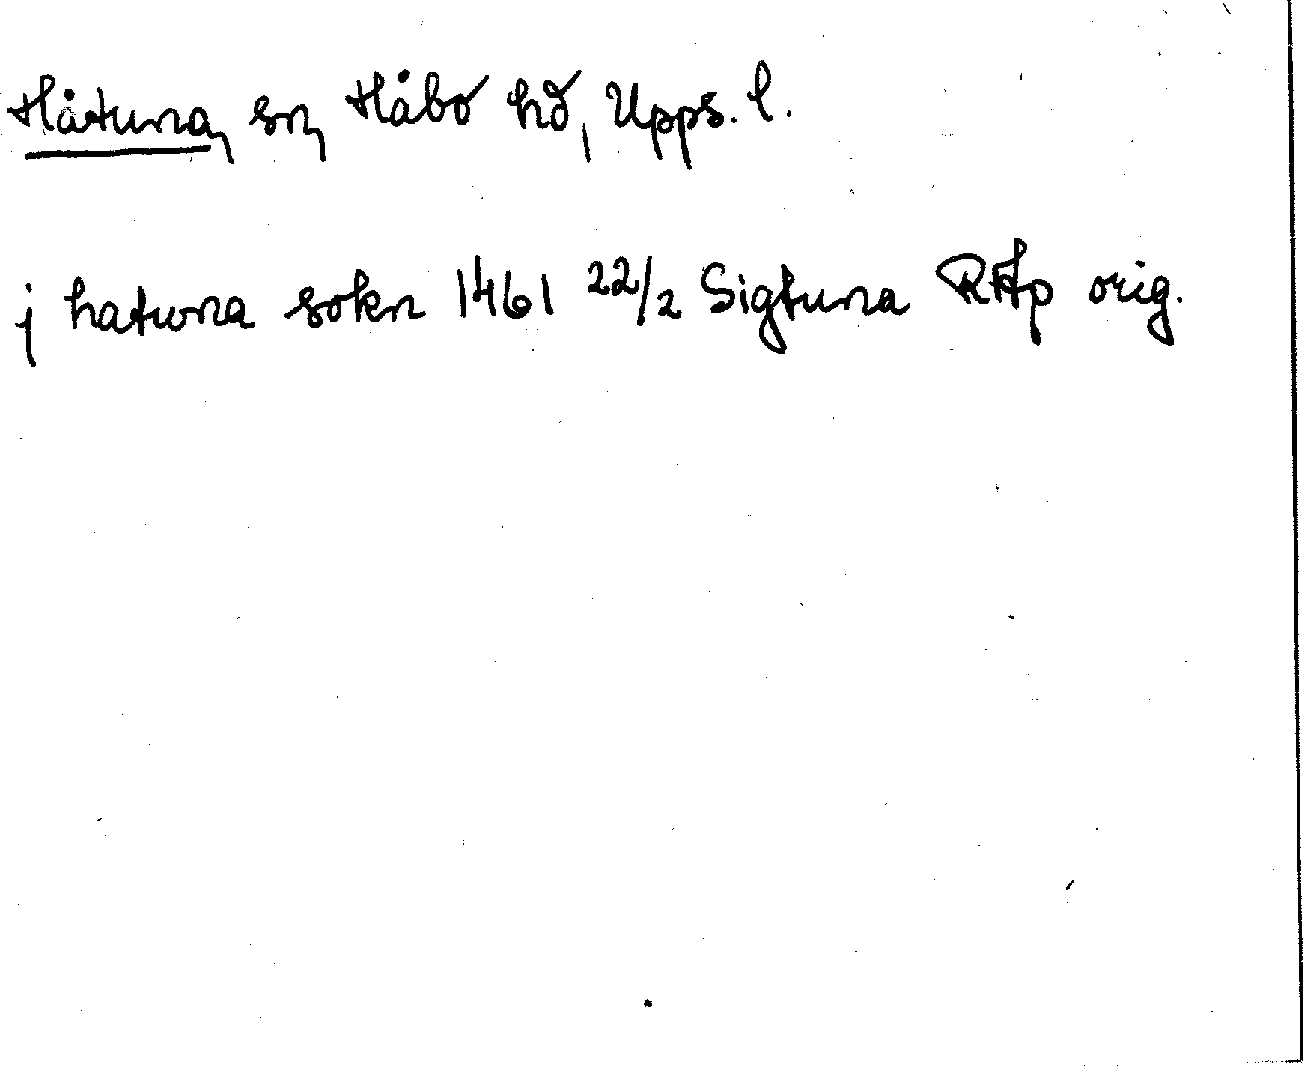 Håtuna, sn, Håbo hd, Upps. l.
j hatuna sokn 1461 22/2 Sigtuna RAp orig.